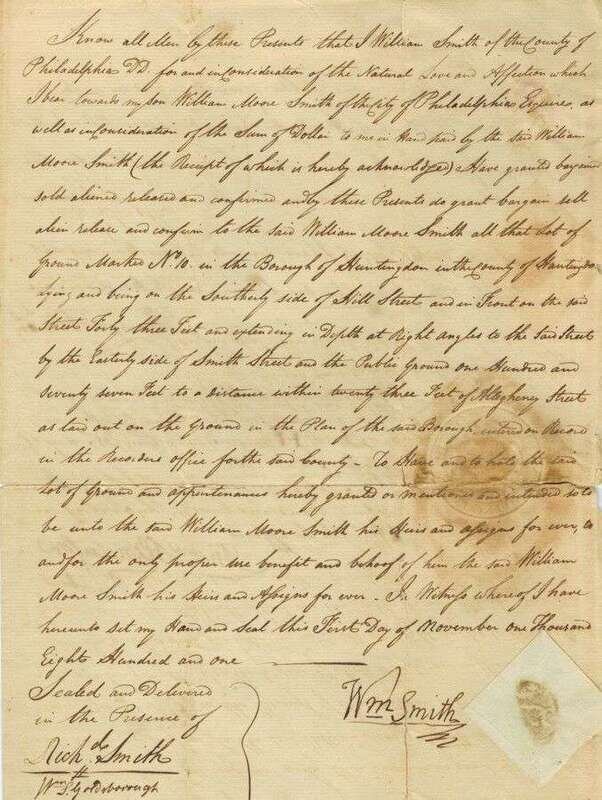 Know all Men by these Presents that I William Smith of the County of
Philadelphia DD. for and in Consideration of the Natural Love and Affection which
I bear towards my son William Moore Smith of the City of Philadelphia Esquire, as
well as in Consideration of the Sum of Dollar to me in Hand paid by the said William
Moore Smith (the Receipt of which is hereby acknowledged) Have granted bargained
sold aliened released and confirmed and by these Presents do grant bargain sell
alien release and confirm to the said William Moore Smith all that Lot of
Ground Marked No. 10. in the Borough of Huntingdon in the County of Huntingdon
lying and being on the Southerly side of Hill Street and in Front on the said
Street Forty three Feet and extending in Depth at Right angles to the Said Street
by the Easterly side of Smith Street and the Public Ground one Hundred and
seventy seven Feet to a distance within twenty three Feet of Allegheney Street
as laid out on the Ground in the Plan of the said Borough, entered on Record
in the Recorders office for the said County – To Have and to hold the said
Lot of Ground and appurtenances hereby granted or mentioned and intended so to
be unto the said William Moore Smith his Heirs and assigns for ever, to
and for the only proper use benefit and behoof of him the said William
Moore Smith his Heirs and Assigns for ever – In Witness whereof I have
hereunto set my Hand and Seal this First Day of November one Thousand
Eight Hundred and one
Sealed and Delivered
in the Presence of
Wm Smith
Richd Smith
Wm Goldsborough